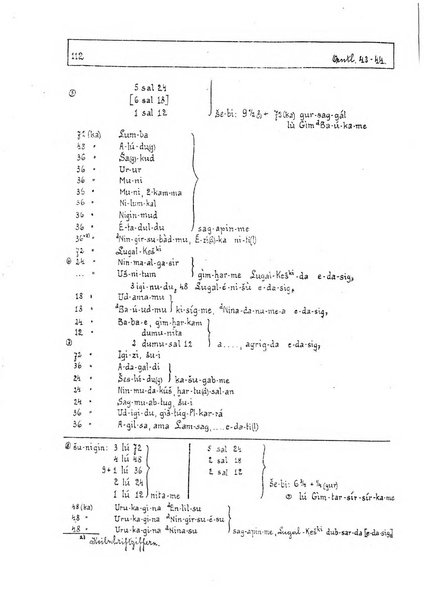 112 Gentl. 43-44.
① 5 sal 24
[6 sal 18]
1 sal 12
še-bi: 9 + 72(ka) gur-sag-gál
lú Gim-ᵈBa-ú-ka-me
72 (ka) Lum-ba
48 " A-lú-du(g)
36 " Šà(g)-kud
36 " Ur-ur
36 " Mu-ni
36 " Mu-ni, 2-kam-ma
36 " Ni-lum-kal
36 " Nigin-mud
36 " É-ta-dul-du } sag-apin-me
36ᵃ⁾ " ᵈNin-gir-su-bàd-mu, É-zi(b)-ka ni-ti(l)
72 " Lugal-Keški
② 24 " Nin-ma-al-ga-sír
... " Uš-ni-tum } gìm-ḫar-me Lugal-Keški-da e-da-sig,
3 igi-nu-du, 48 Lugal-é-ni-šù e-da-sig,
18 " Ud-ama-mu
13 " ᵈBa-ú-ud-mu } ki-síg-me, ᵈNina-da-nu-me-a e-da-sig,
24 " Ba-ba-e, gìm-ḫar-kam
12 " dumu-nita
③ 2 dumu-sal 12 a...., agrig-da e-da-sig,
72 " Igi-zi, šu-i
36 " A-da-gal-di
24 " Šeš-lú-du(g) } ka-šu-gab-me
24 " Nin-mu-da-kúš, ḫar-tu(d)-sal-an
24 " Sag-mu-ab-tug, šu-i
36 " Ud-igi-du, giš-túg-PI-kar-rá
36 " A-gil-sa, ama Lam-sag,... e-da-ti(l)
④ šu-nigin: 3 lú 72 5 sal 24
4 lú 48 2 sal 18
9+1 lú 36 2 sal 12
2 lú 24
1 lú 12 nita-me
še-bi: 6 ¾ + ¼ (gur)
① lú Gim-tar-sír-sír-ka-me
48 (ka) Uru-ka-gi-na ᵈEn-lil-su
48 " Uru-ka-gi-na ᵈNin-gir-su-é-su
48 " Uru-ka-gi-na ᵈNina-su sag-apin-me, Lugal-Keški dub-sar-da [e-da-sig]
a) Keilschriftziffern.